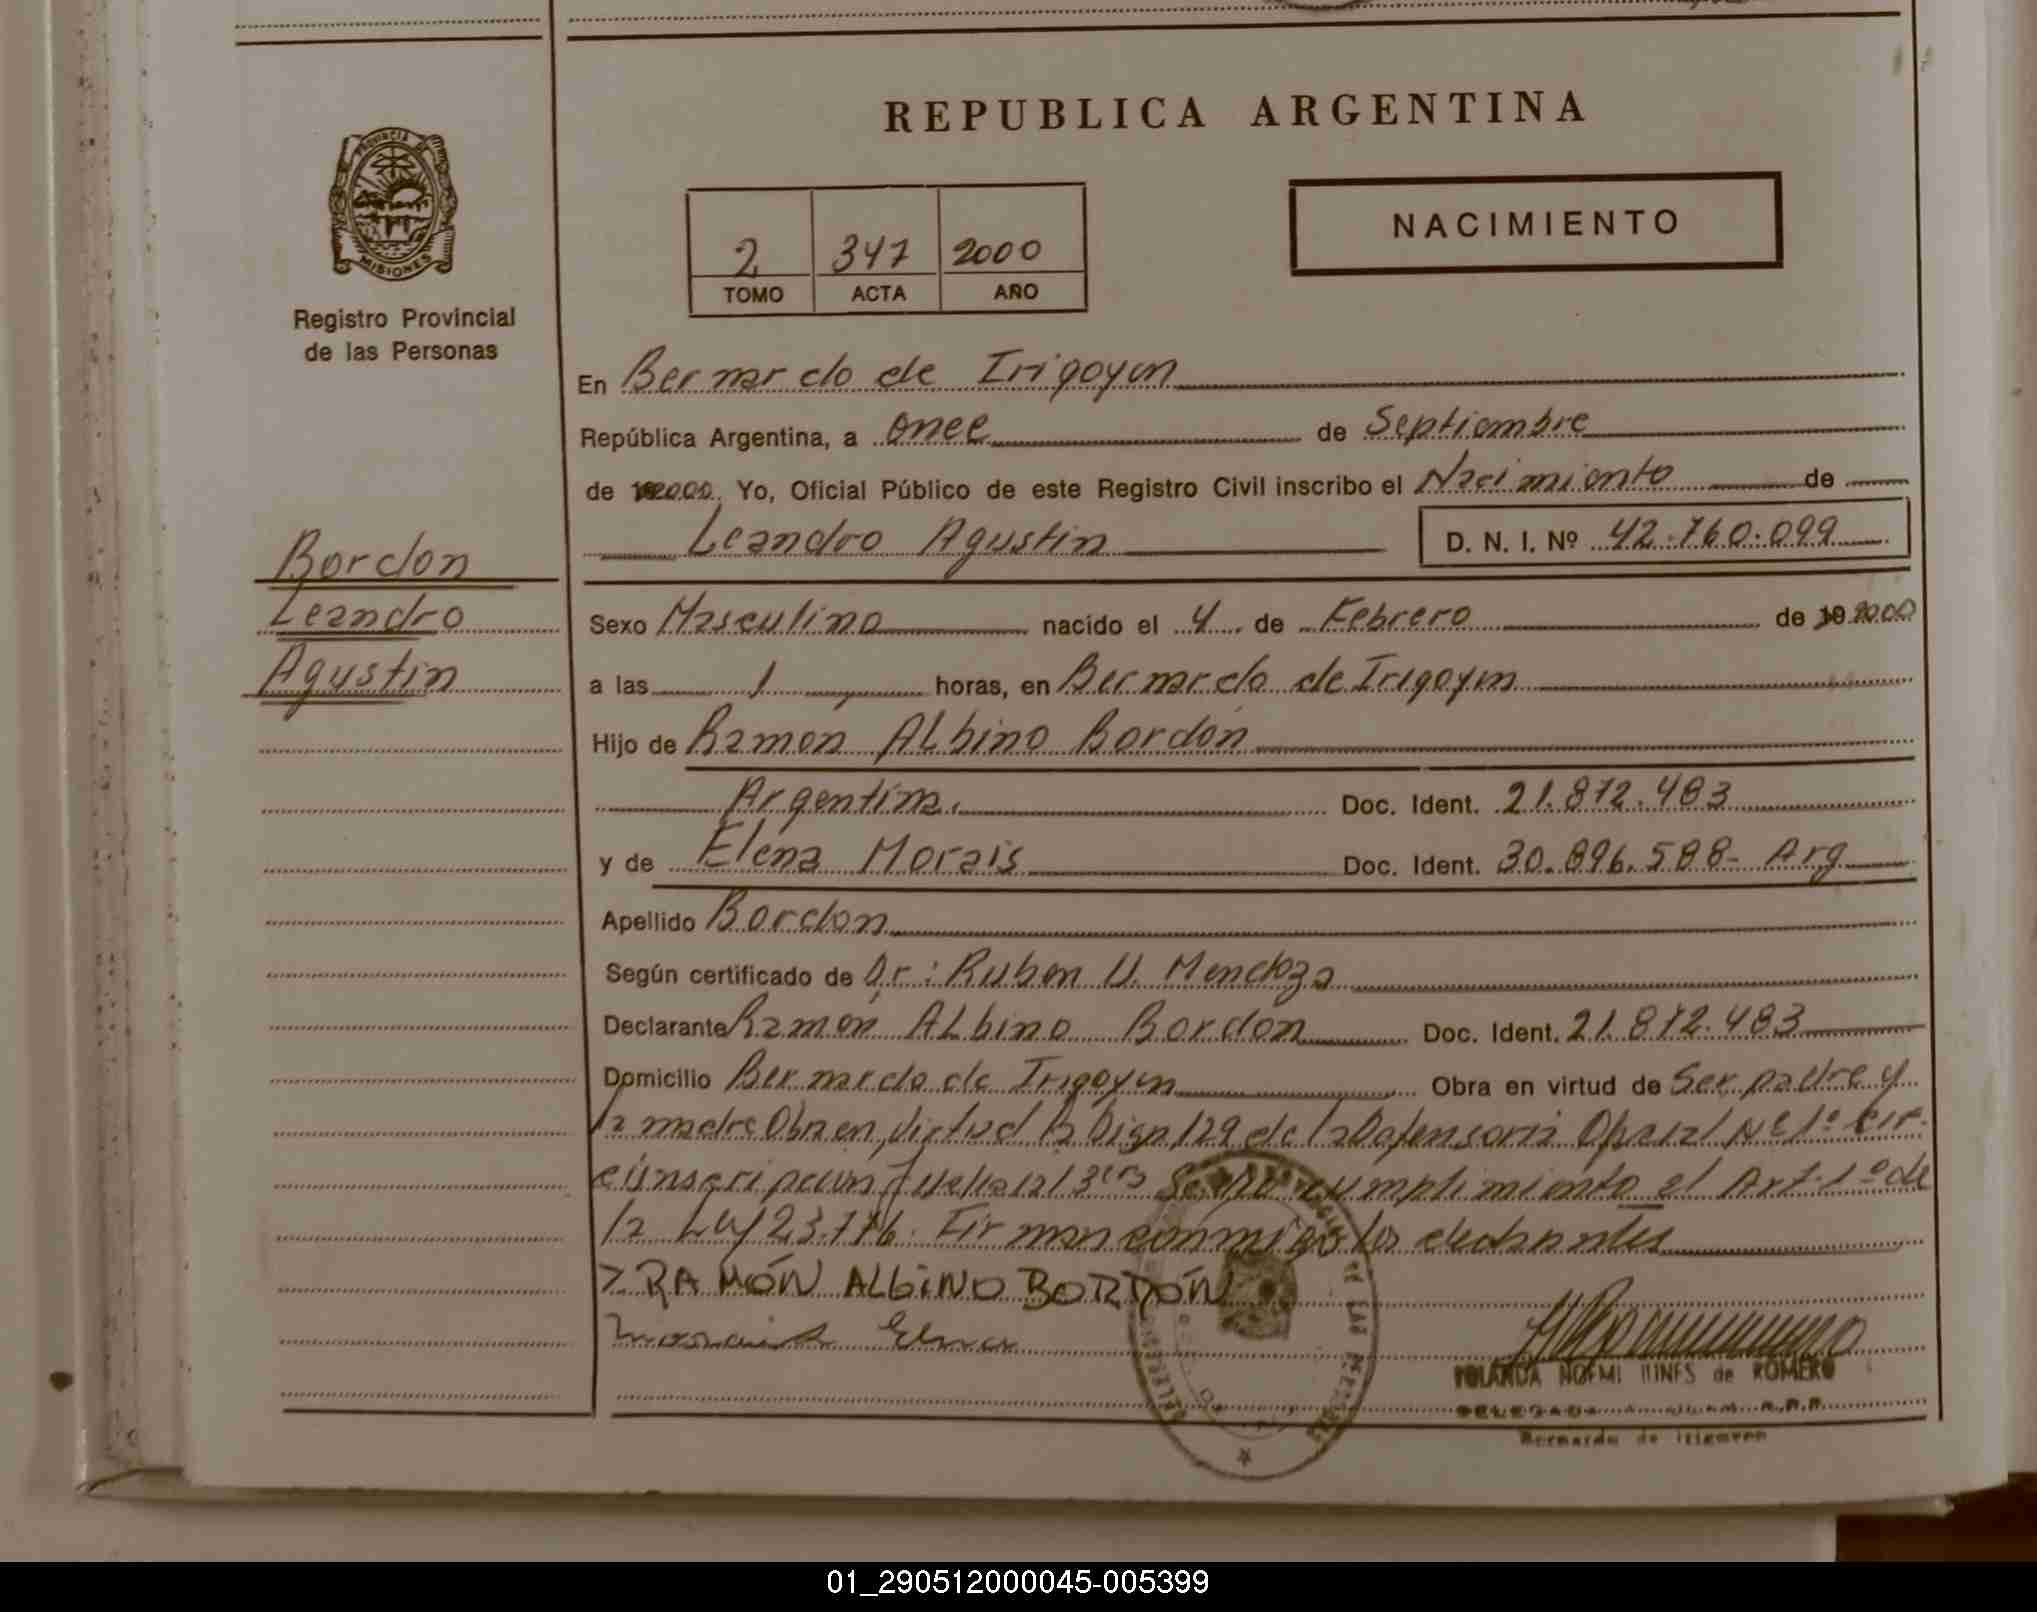 REPUBLICA ARGENTINA
PROVINCIA DE MISIONES
Registro Provincial
de las Personas
NACIMIENTO
2 347 2000
TOMO ACTA AÑO
En Bernardo de Irigoyen
República Argentina, a once de Septiembre
de 2000. Yo, Oficial Público de este Registro Civil inscribo el Nacimiento de
Leandro Agustin D. N. I. Nº 42.760.099
Bordon
Leandro
Agustin
Sexo Masculino nacido el 4 de Febrero de 19 2000
a las 1 horas, en Bernardo de Irigoyen
Hijo de Ramón Albino Bordón
Argentina. Doc. Ident. 21.872.483
y de Elena Morais Doc. Ident. 30.896.588- Arg
Apellido Bordon
Según certificado de Dr.: Ruben U. Mendoza
Declarante Ramón Albino Bordón Doc. Ident. 21.872.483
Domicilio Bernardo de Irigoyen Obra en virtud de Ser padre y
la madre Obra en virtud la 129 de la Defensoria Oficial Nº 1º Cir-
cunscripcion Judicial 3era cumplimiento el Art. 1º de
la Ley 23.776. Firman conmigo los
RAMÓN ALbiNO BORDÓN
Elena
YOLANDA NOEMI de ROMERO
DELEGADA R.P.P.
Bernardo de Irigoyen
01_290512000045-005399